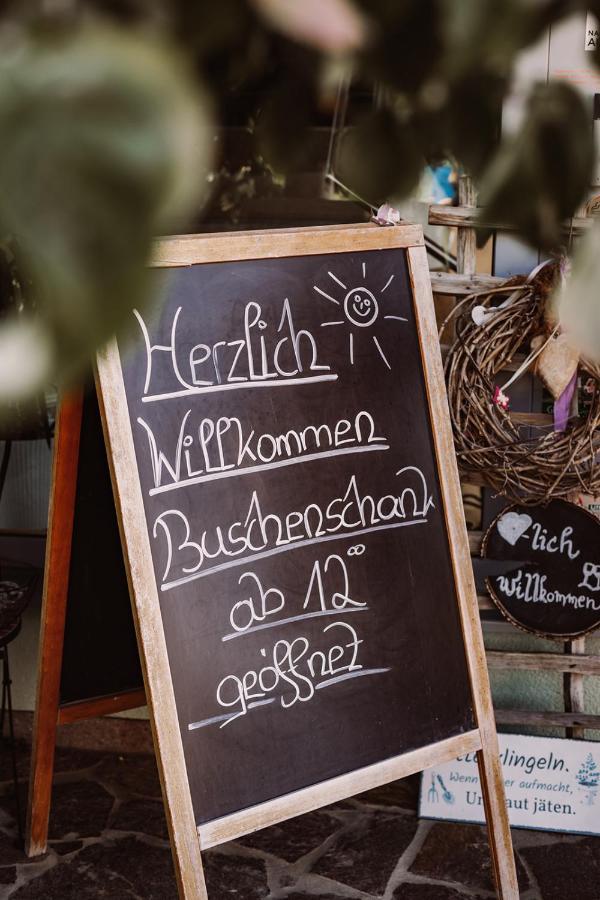 Herzlich
Willkommen
Buschenschank
ab 12⁰⁰
geöffnet
-lich
willkommen
klingeln.
Wenn aufmacht,
jäten.